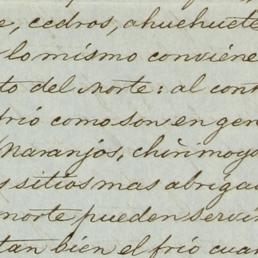 e, cedros, ahuehuete
lo mismo conviene
to del Norte: al cont
frio como son en gen
Naranjos, chirimoya
s sitios mas abrigad
norte pueden servi
tan bien el frio cuan